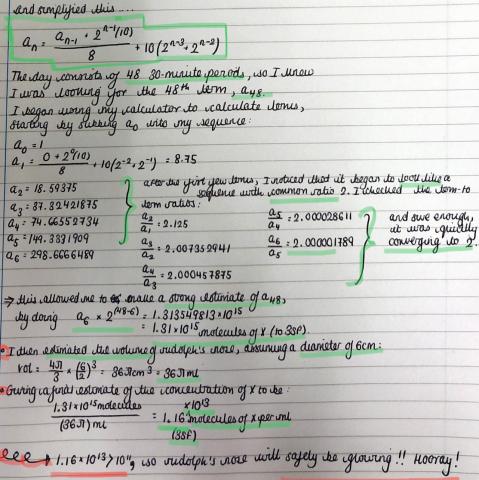 and simplified this ....
a_n = (a_{n-1} + 2^{n-1}(10))/8 + 10(2^{n-3} + 2^{n-2})
The day consists of 48 30-minute periods, so I knew
I was looking for the 48th term, a_48.
I began using my calculator to calculate terms,
starting by subbing a_0 into my sequence:
a_0 = 1
a_1 = (0 + 2^0(10))/8 + 10(2^-2 + 2^-1) = 8.75
a_2 = 18.59375
a_3 = 37.32421875
a_4 = 74.66552734
a_5 = 149.3331909
a_6 = 298.6666489
after the first few terms, I noticed that it began to look like a
sequence with common ratio 2. I checked the term-to-
term ratios:
a_2/a_1 = 2.125
a_3/a_2 = 2.007352941
a_4/a_3 = 2.000457875
a_5/a_4 = 2.000028611
a_6/a_5 = 2.000001789
and sure enough,
it was quickly
converging to 2.
⇒ this allowed me to make a strong estimate of a_48,
by doing a_6 × 2^(48-6) = 1.313549813 × 10^15
= 1.31 × 10^15 molecules of X (to 3SF).
• I then estimated the volume of rudolph's nose, assuming a diameter of 6cm:
vol = 4π/3 × (6/2)^3 = 36πcm^3 = 36π ml
• Giving a final estimate of the concentration of X to be:
1.31 × 10^15 molecules/(36π) ml = 1.16 ×10^13 molecules of X per ml
(3SF)
1.16 × 10^13 > 10^11, so rudolph's nose will safely be glowing!! Hooray!